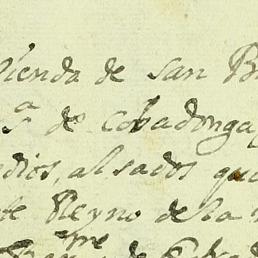 ienda de san B
s.ª de cobadonga
ndios, alsados que
te Reyno de la